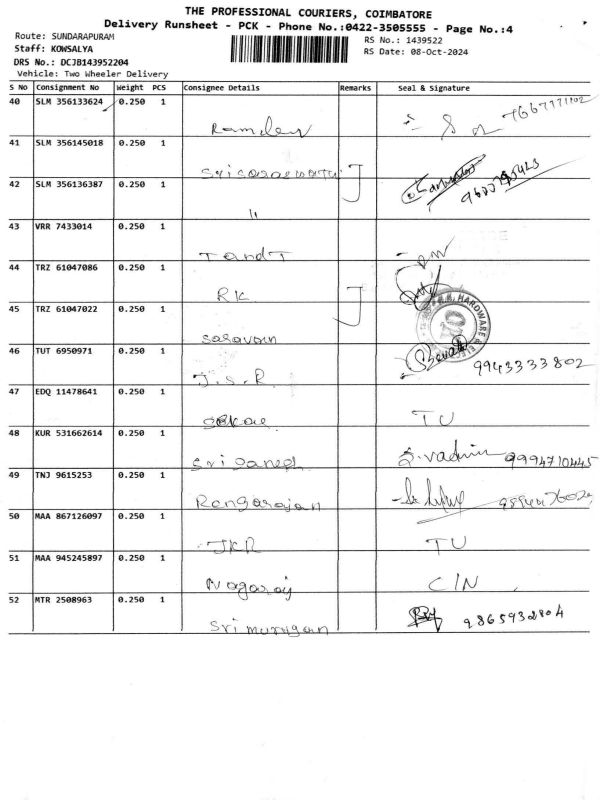 THE PROFESSIONAL COURIERS, COIMBATORE
Delivery Runsheet - PCK - Phone No.:0422-3505555 - Page No.:4
Route: SUNDARAPURAM
RS No.: 1439522
Staff: KOWSALYA
RS Date: 08-Oct-2024
DRS No.: DCJB143952204
Vehicle: Two Wheeler Delivery
S No Consignment No Weight PCS Consignee Details Remarks Seal & Signature
40 SLM 356133624 0.250 1
Ramdev
41 SLM 356145018 0.250 1
Sri saraswathi
42 SLM 356136387 0.250 1
"
43 VRR 7433014 0.250 1
T and T
44 TRZ 61047086 0.250 1
RK
45 TRZ 61047022 0.250 1
HARDWARE
46 TUT 6950971 0.250 1
9943333802
J.S.R
47 EDQ 11478641 0.250 1
TU
48 KUR 531662614 0.250 1
Sri Ganesh 9994710445
49 TNJ 9615253 0.250 1
Rengarajan
50 MAA 867126097 0.250 1
JKR TU
51 MAA 945245897 0.250 1
Nagaraj
52 MTR 2508963 0.250 1
9865932804
Sri murugan